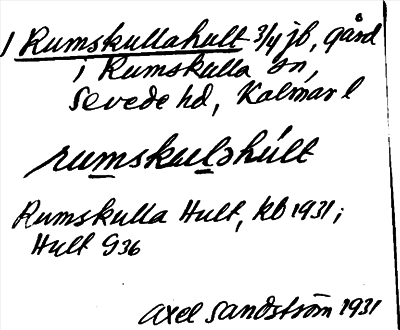 1 Rumskullahult 3/4 jb, gård
i Rumskulla sn,
Sevede hd, Kalmar l
rumskulshúlt
Rumskulla Hult, kb 1931;
Hult G36
Axel Sandström 1931